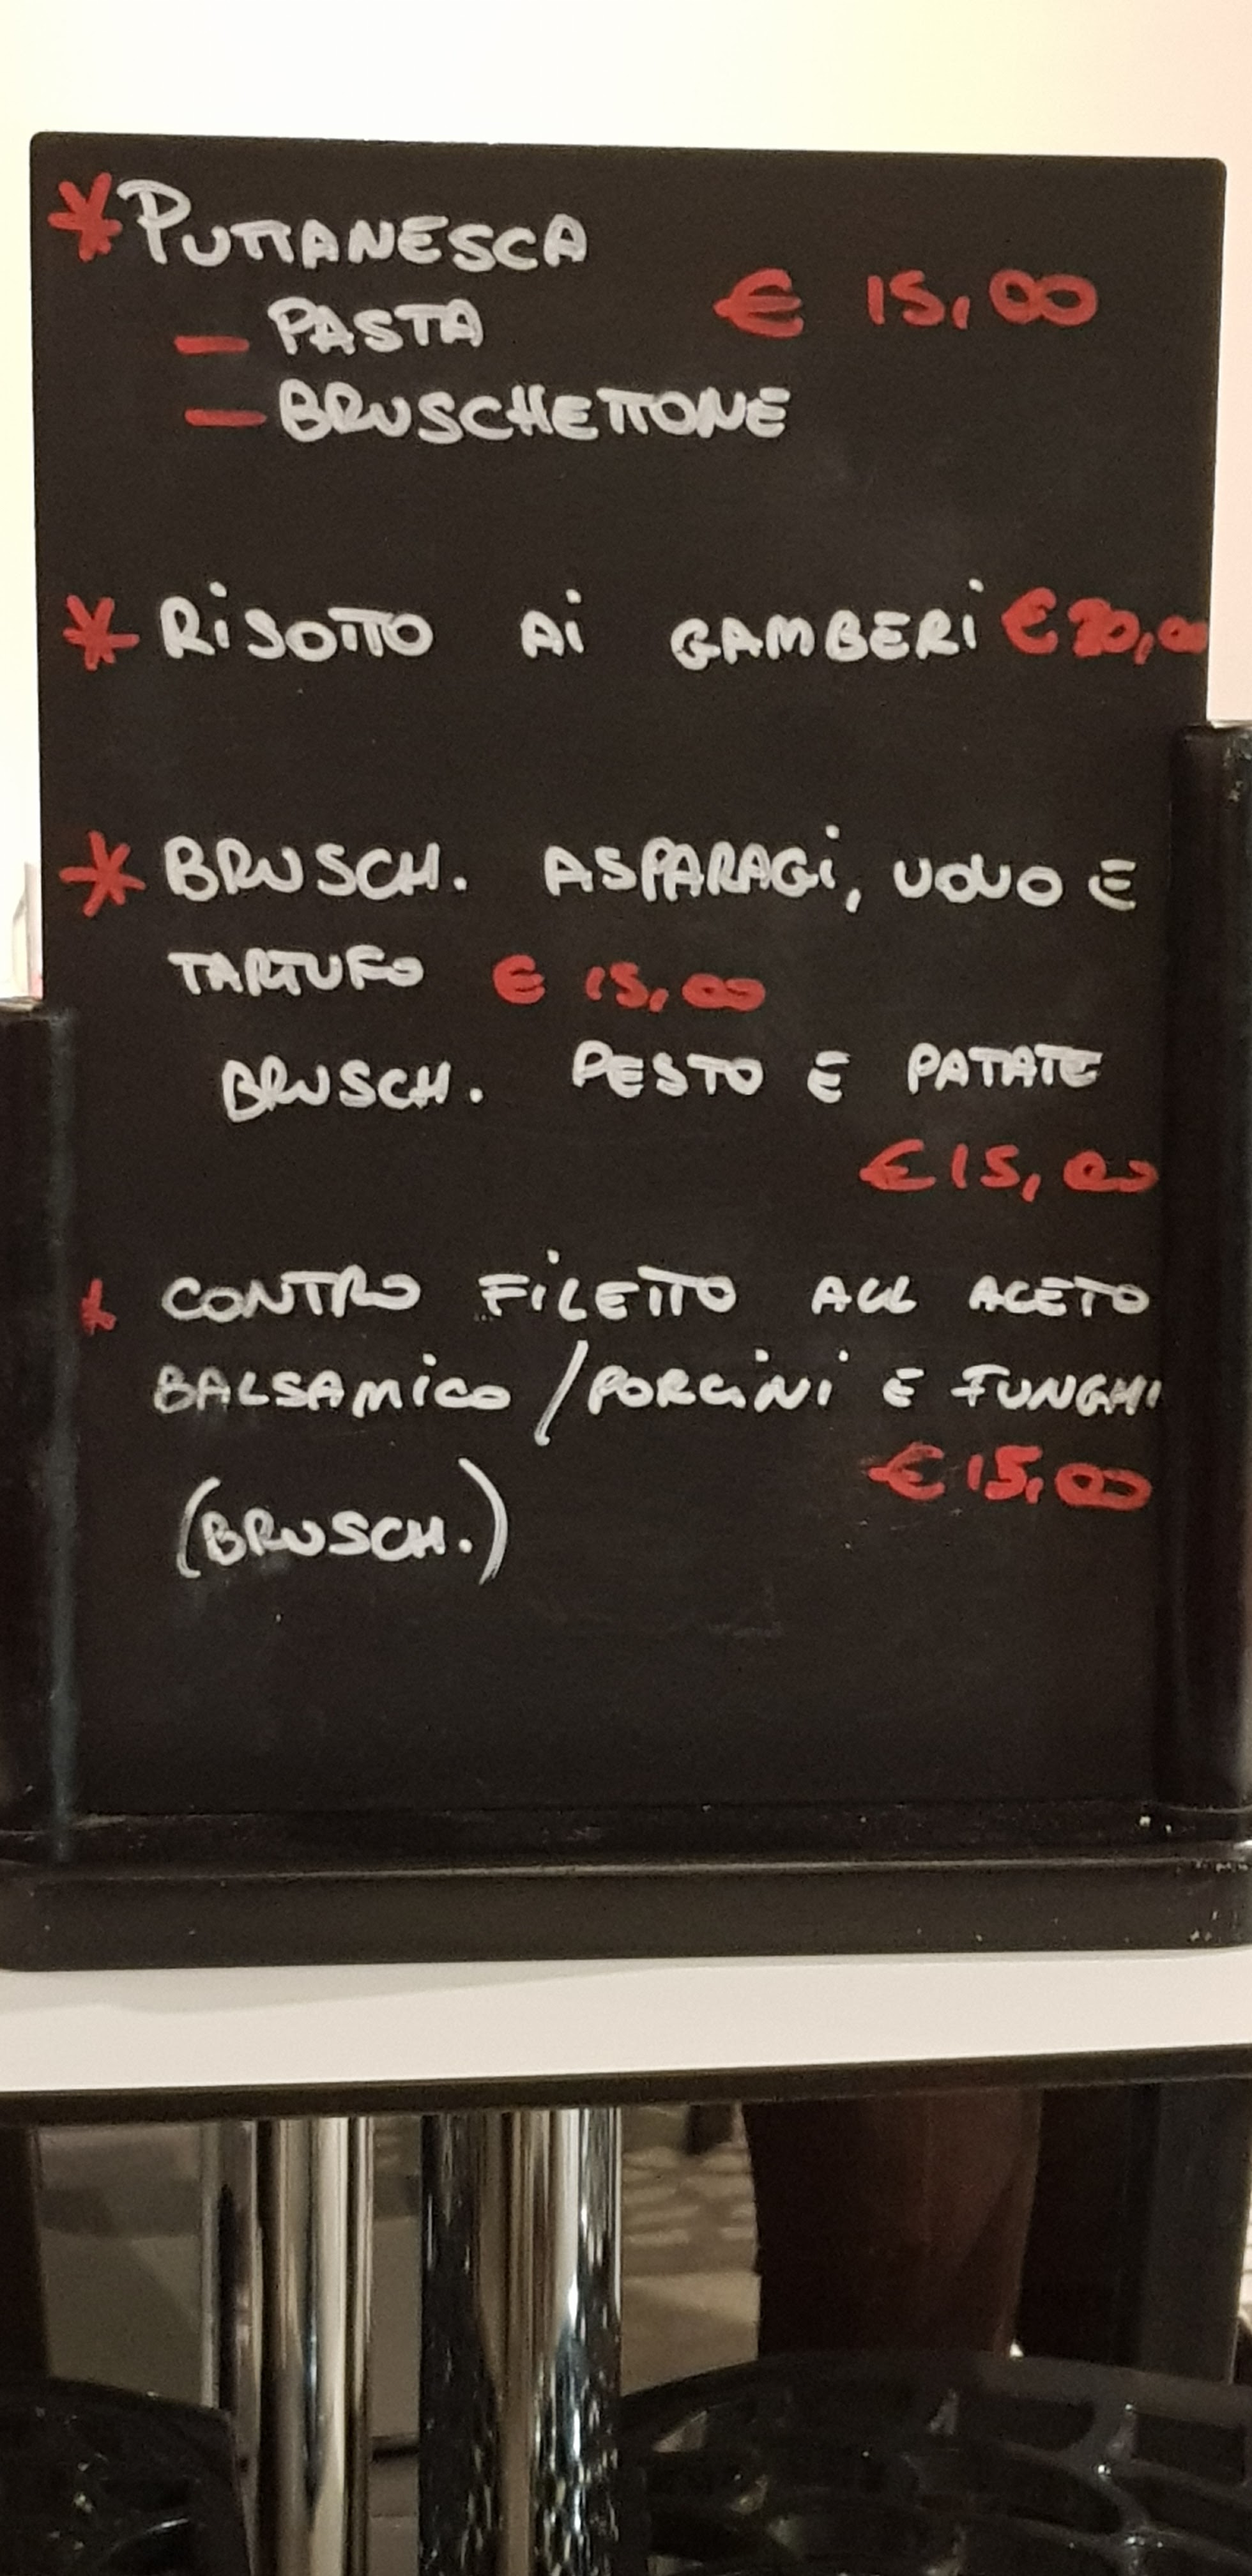 * PUTTANESCA
- PASTA € 15,00
- BRUSCHETTONE
* RiSOTTO Ai GAMBERi € 20,00
* BRUSCH. ASPARAGi, UOVO E
TARTUFO € 15,00
BRUSCH. PESTO E PATATE
€ 15,00
* CONTRO FiLETTO ALL ACETO
BALSAMiCO / PORCiNi E FUNGHI
€ 15,00
(BRUSCH.)